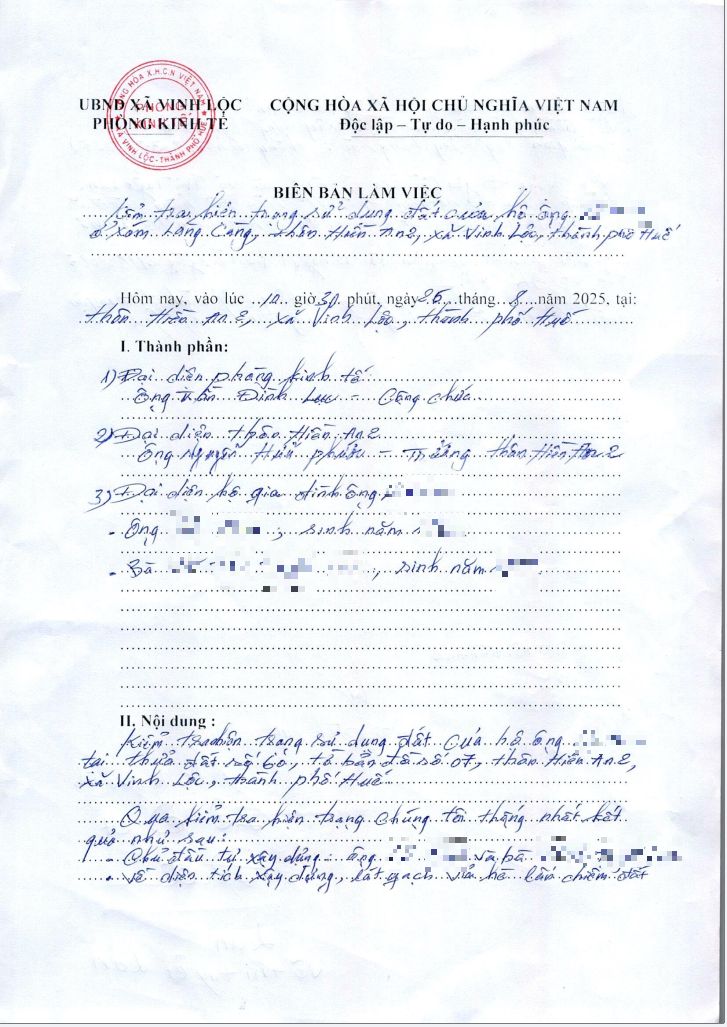 CỘNG HÒA X.H.C.N VIỆT NAM
PHÒNG
KINH TẾ
XÃ VINH LỘC-THÀNH PHỐ HUẾ
UBND XÃ VINH LỘC
PHÒNG KINH TẾ
CỘNG HÒA XÃ HỘI CHỦ NGHĨA VIỆT NAM
Độc lập – Tự do – Hạnh phúc
BIÊN BẢN LÀM VIỆC
Kiểm tra hiện trạng sử dụng đất của hộ ông
ở xóm Làng, thôn Hiền An 2, xã Vinh Lộc, thành phố Huế
Hôm nay, vào lúc 10 giờ 30 phút, ngày 26 tháng 8 năm 2025, tại:
thôn Hiền An 2, xã Vinh Lộc, thành phố Huế
I. Thành phần:
1) Đại diện phòng kinh tế
Ông Trần Đình Lực - Công chức
2) Đại diện thôn Hiền An 2
Ông Nguyễn Hữu Phước - Trưởng thôn Hiền An 2
3) Đại diện hộ gia đình ông
- Ông , sinh năm
- Bà , sinh năm
II. Nội dung :
Kiểm tra hiện trạng sử dụng đất của hộ ông
tại thửa đất số 60, tờ bản đồ số 07, thôn Hiền An 2,
xã Vinh Lộc, thành phố Huế
Qua kiểm tra hiện trạng chúng tôi thống nhất kết
quả như sau:
- Chủ đầu tư xây dựng - ông và bà
- Về diện tích xây dựng, lát gạch vỉa hè lấn chiếm đất